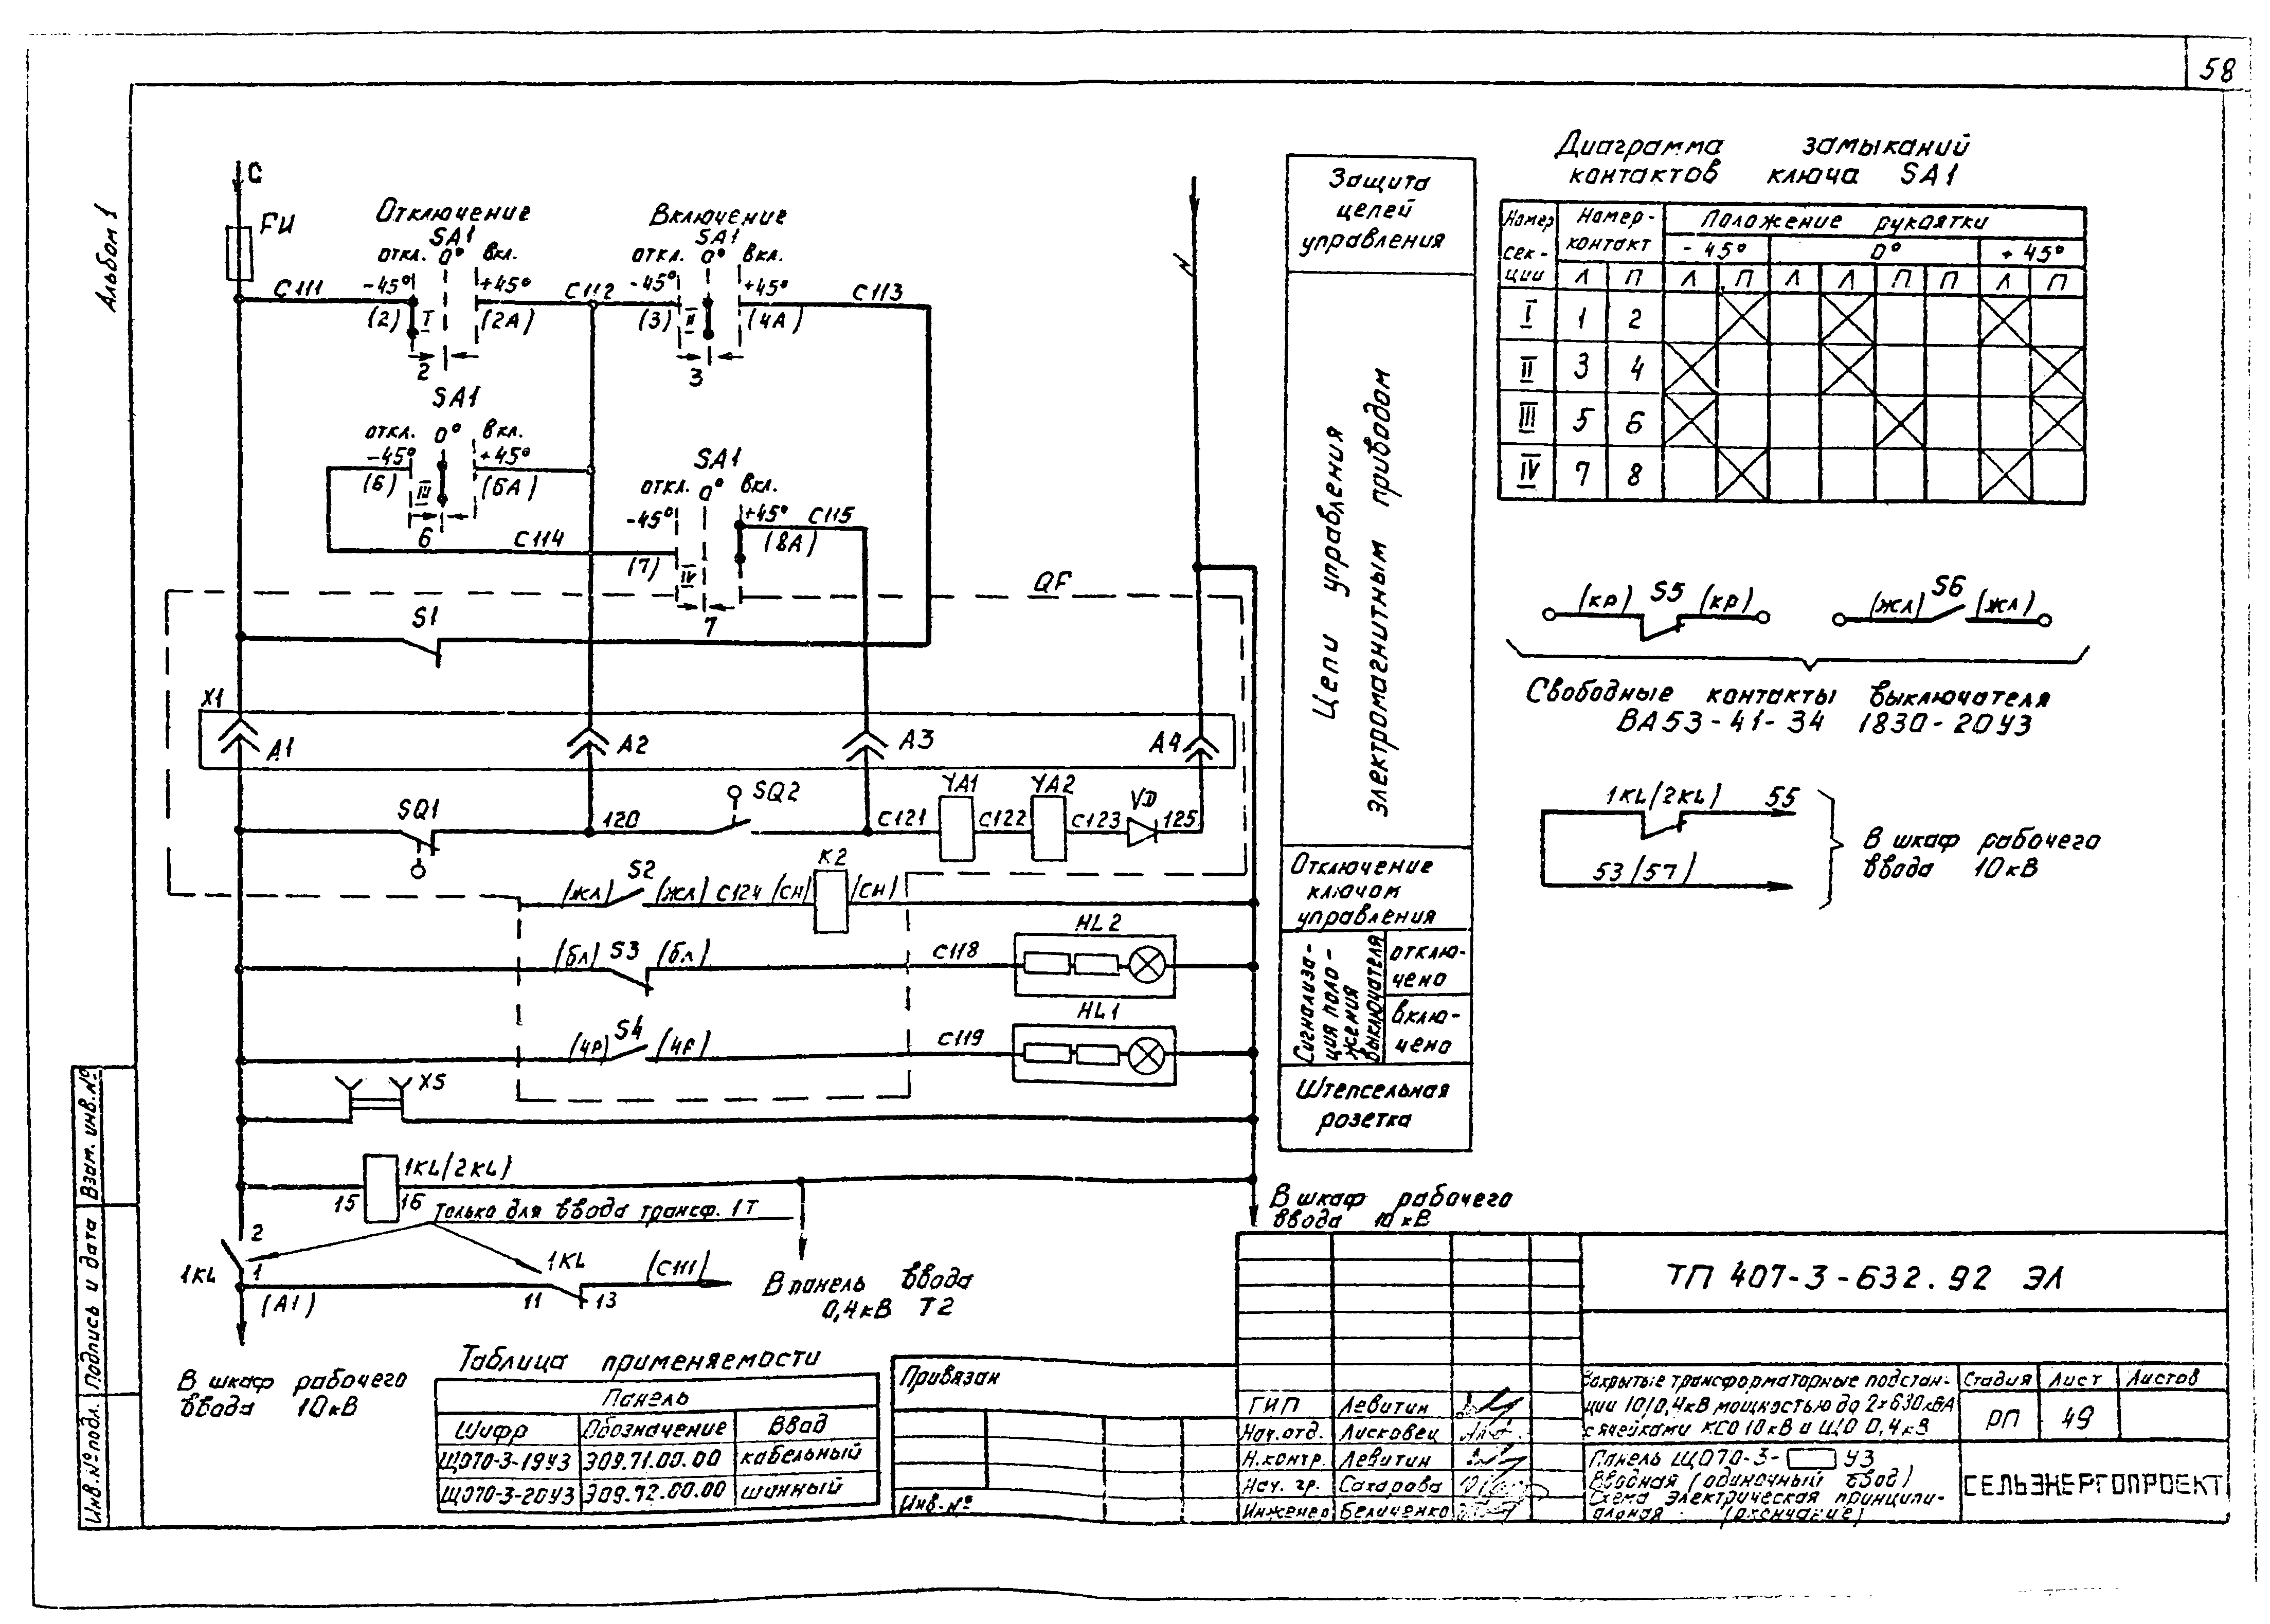 58
Альбом 1
С
FU
Отключение
SA1
откл. 0° вкл.
-45° +45°
С111
(2) I (2А)
2
С112
Включение
SA1
откл. 0° вкл.
-45° +45°
С113
(3) II (4А)
3
SA1
откл. 0° вкл.
-45° +45°
(6) III (6А)
6
С114
SA1
откл. 0° вкл.
-45° +45°
С115
(7) IV (8А)
7
QF
S1
X1
А1 А2 А3 А4
SQ1
120
SQ2
С121 YA1 С122 YA2 С123 VD 125
(жл) S2 (жл) С124 (сн) К2 (сн)
(бл) S3 (бл) С118 HL2
S4 С119 HL1
XS
15 1KL(2KL) 16
Только для ввода трансф. 1Т
2
1KL
1
(А1)
1KL
11 13
(С111)
В панель ввода
0,4кВ Т2
В шкаф рабочего
ввода 10кВ
В шкаф рабочего
ввода 10кВ
Защита
цепей
управления
Цепи управления
электромагнитным приводом
Отключение
ключом
управления
Сигнализа-
ция поло-
жения
выключателя
отклю-
чено
вклю-
чено
Штепсельная
розетка
Диаграмма замыканий
контактов ключа SA1
Номер
сек-
ции
Номер-
контакт
Положение рукоятки
-45° 0° +45°
Л П Л П Л Л П П Л П
I 1 2
II 3 4
III 5 6
IV 7 8
(кр) S5 (кр)
(жл) S6 (жл)
Свободные контакты выключателя
ВА53-41-34 1830-20У3
1KL(2KL) 55
53(57)
В шкаф рабочего
ввода 10кВ
Таблица применяемости
Панель
Шифр Обозначение Ввод
ЩО70-3-19У3 Э09.71.00.00 кабельный
ЩО70-3-20У3 Э09.72.00.00 шинный
Привязан
Инв.№
ТП 407-3-632.92 ЭЛ
ГИП Левитин
Нач.отд. Лисковец
Н.контр. Левитин
Нач. гр. Сахарова
Инженер Беличенко
Закрытые трансформаторные подстан-
ции 10/0,4кВ мощностью до 2×630кВА
с ячейками КСО 10кВ и ЩО 0,4кВ
Стадия Лист Листов
РП 49
Панель ЩО70-3- У3
Вводная (одиночный ввод)
Схема электрическая принципи-
альная (окончание)
СЕЛЬЭНЕРГОПРОЕКТ
Взам. инв.№
Подпись и дата
Инв.№ подл.